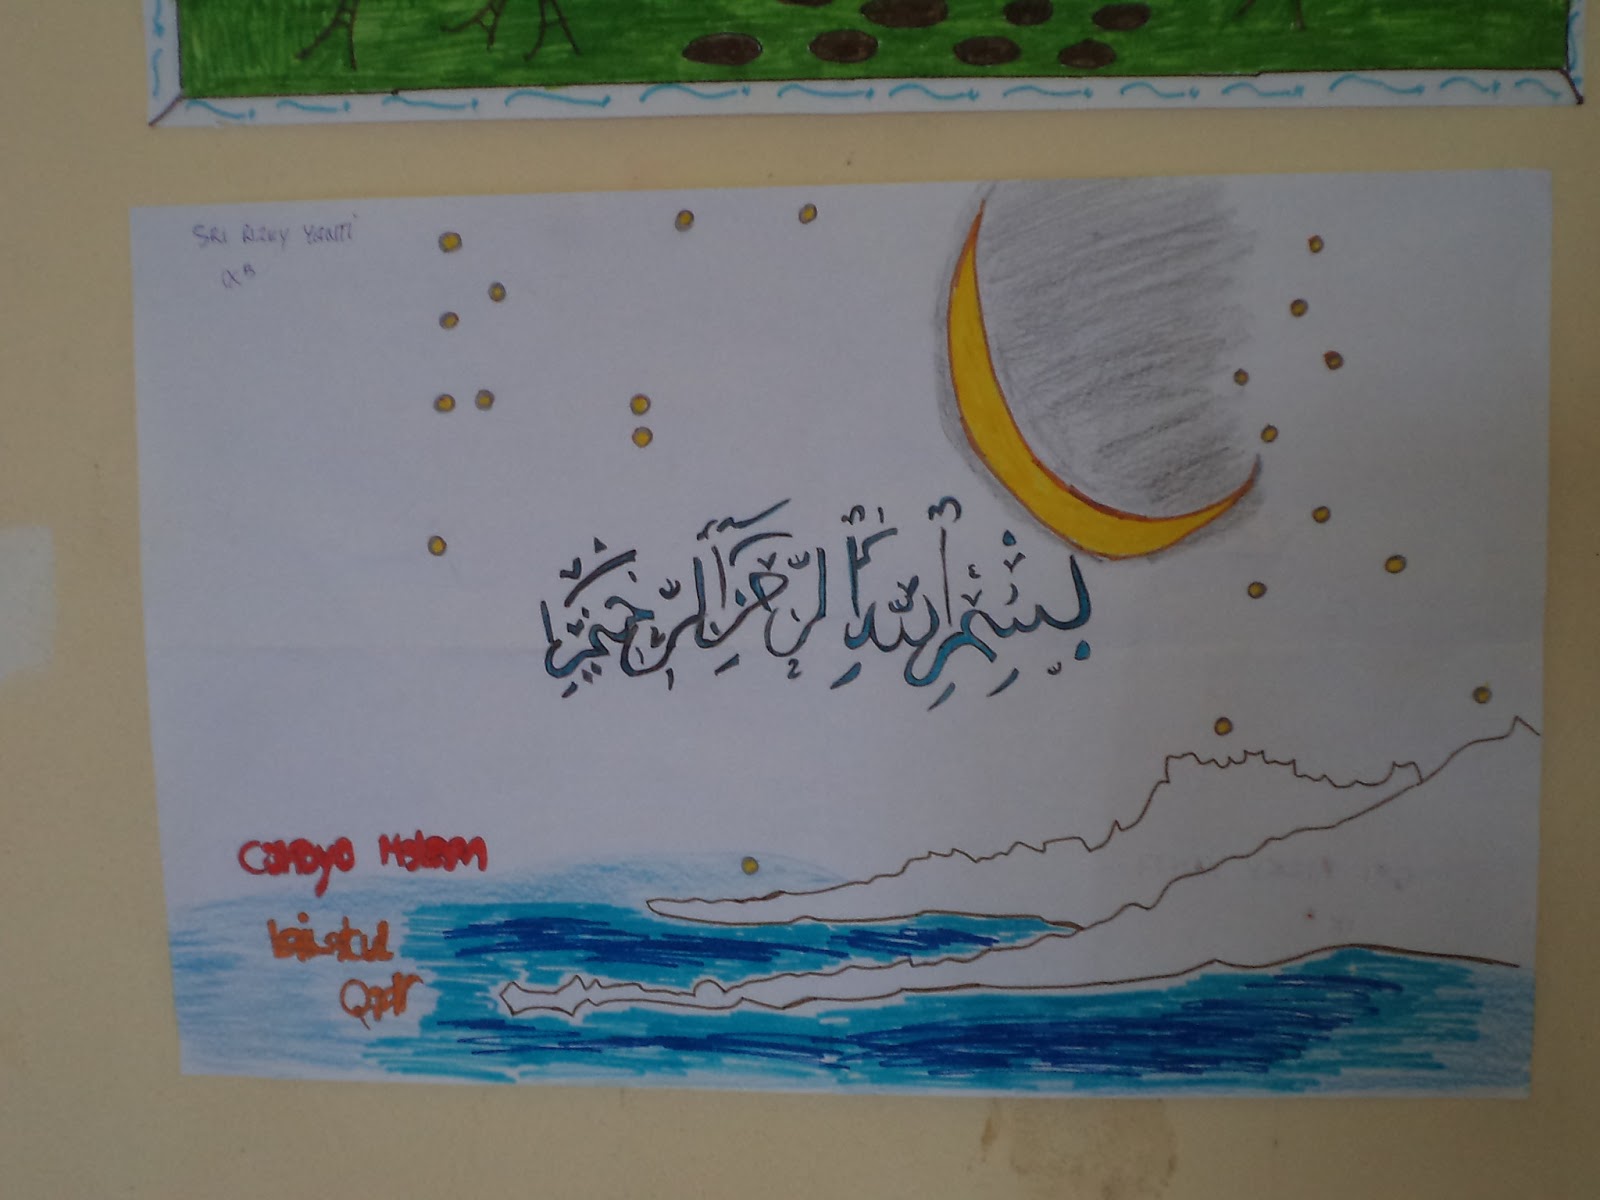 SRI RIZKY YANTI
بِسْمِ اللَّهِ الرَّحْمَنِ الرَّحِيمِ
Cahaya Malam
Qadr